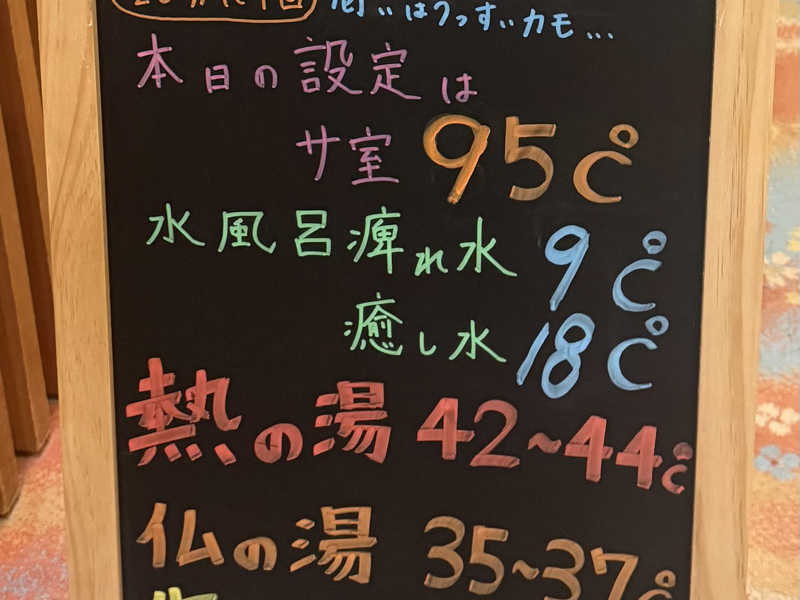 はうっすいカモ...
本日の設定は
サ室 95℃
水風呂痺れ水 9℃
癒し水 18℃
熱の湯 42~44℃
仏の湯 35~37℃